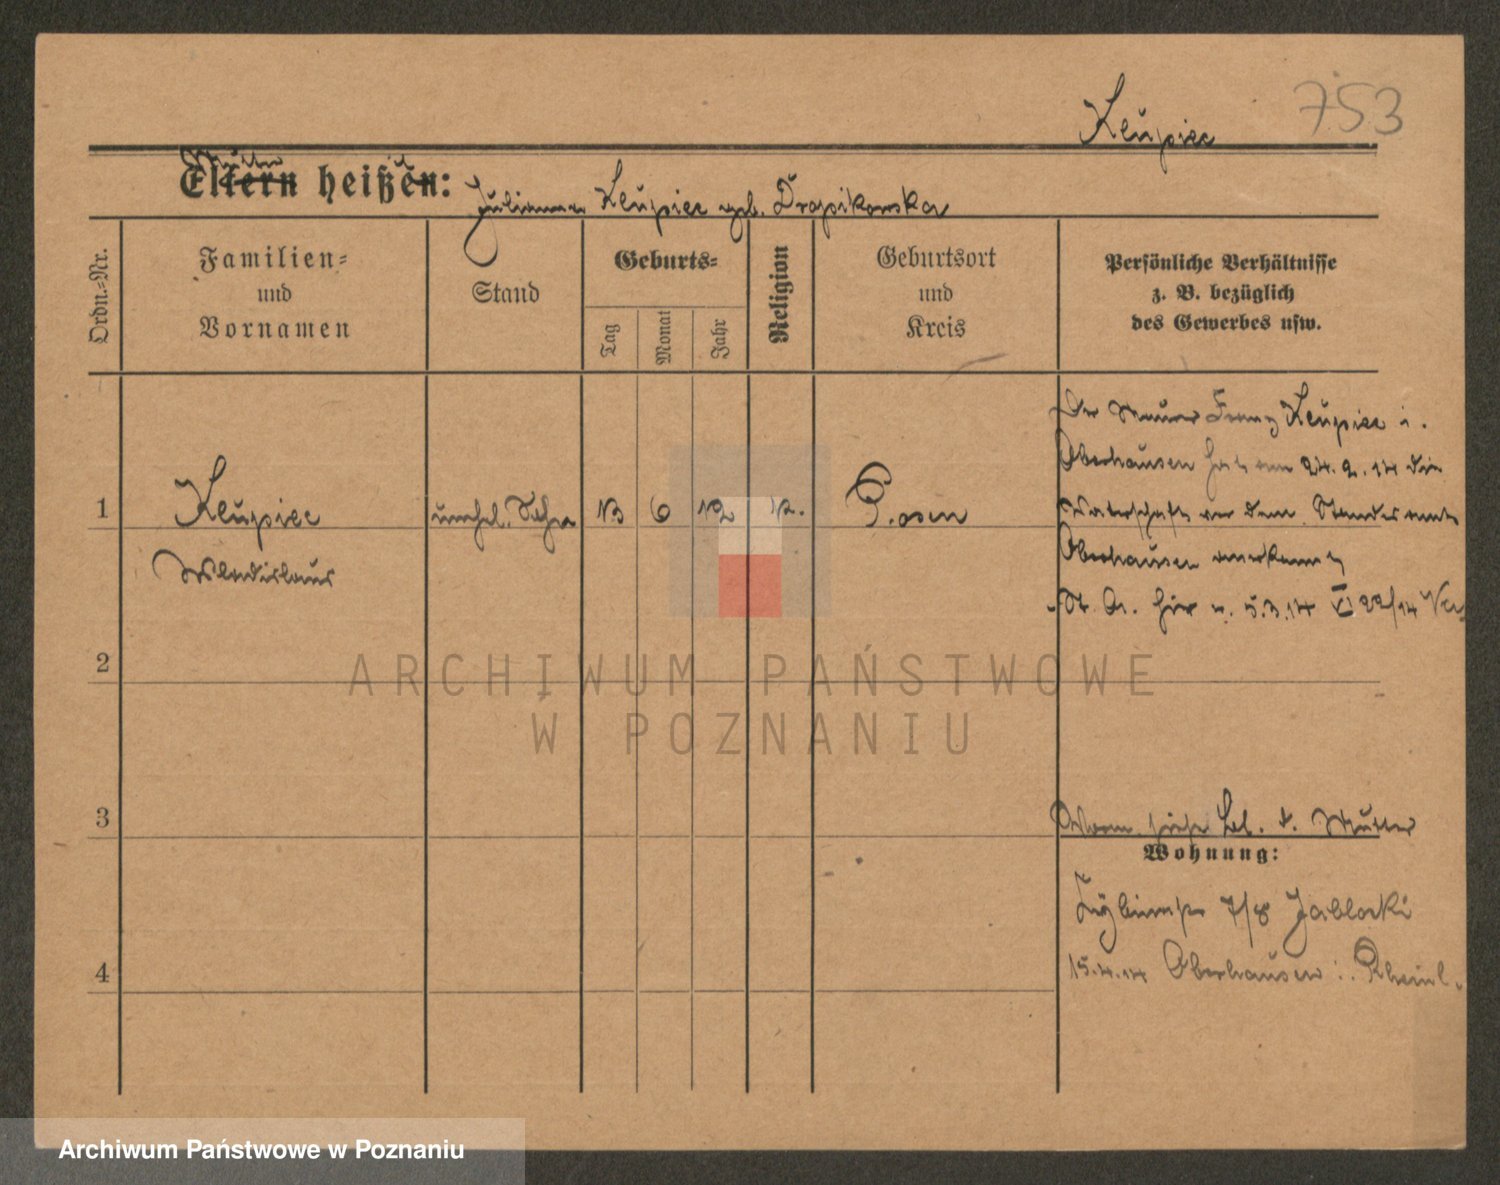 Klupiec 753
Mutter t
Eltern heißen: Julianna Klupiec geb. Dropikowska
Ordn.-Nr.
Familien-
und
Vornamen
Stand
Geburts-
Tag
Monat
Jahr
Religion
Geburtsort
und
Kreis
Persönliche Verhältnisse
z. B. bezüglich
des Gewerbes usw.
1 Klupiec unehel. Sohn 13 6 12 k. Posen
Wladislaus
Der Maurer Franz Klupiec i.
Oberhausen hat am 24.2.14 die
Vaterschaft vor dem Standesamte
Oberhausen anerkannt
St. A. hier v. 5.3.14 XI 22/14
2
3
4
siehe Bl. d. Mutter
Wohnung:
7/8 Jablocki
15.4.14 Oberhausen i. Rheinl.
ARCHIWUM PAŃSTWOWE
W POZNANIU
Archiwum Państwowe w Poznaniu